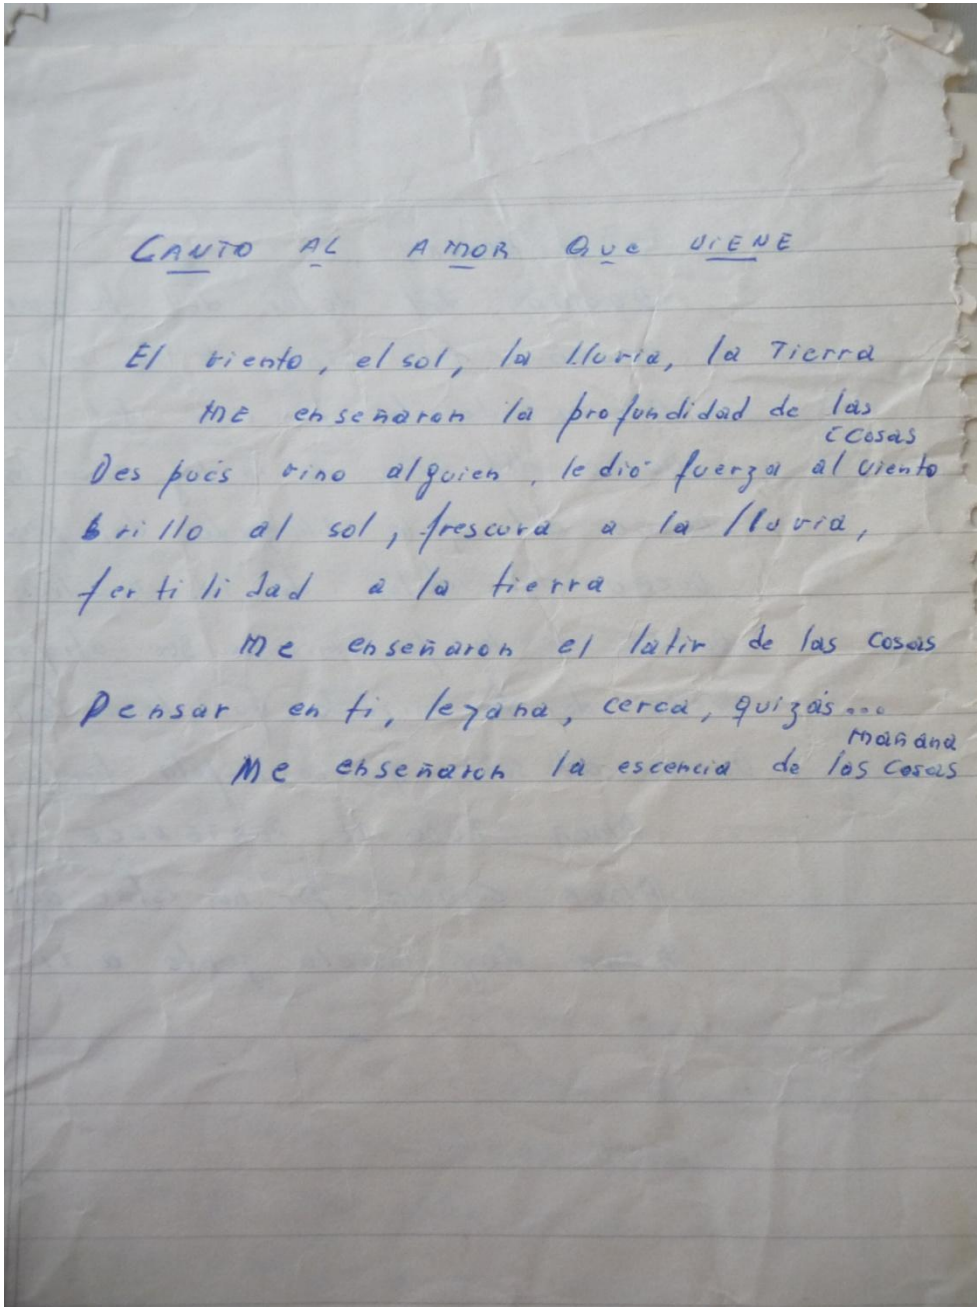 CANTO AL AMOR QUe ViENE
El viento, el sol, la lluvia, la Tierra
ME enseñaron la profundidad de las
cosas
Después vino alguien, le dió fuerza al viento
brillo al sol, frescura a la lluvia,
fertilidad a la tierra
Me enseñaron el latir de las cosas
Pensar en ti, lejana, cerca, quizás...
mañana
Me enseñaron la escencia de las cosas